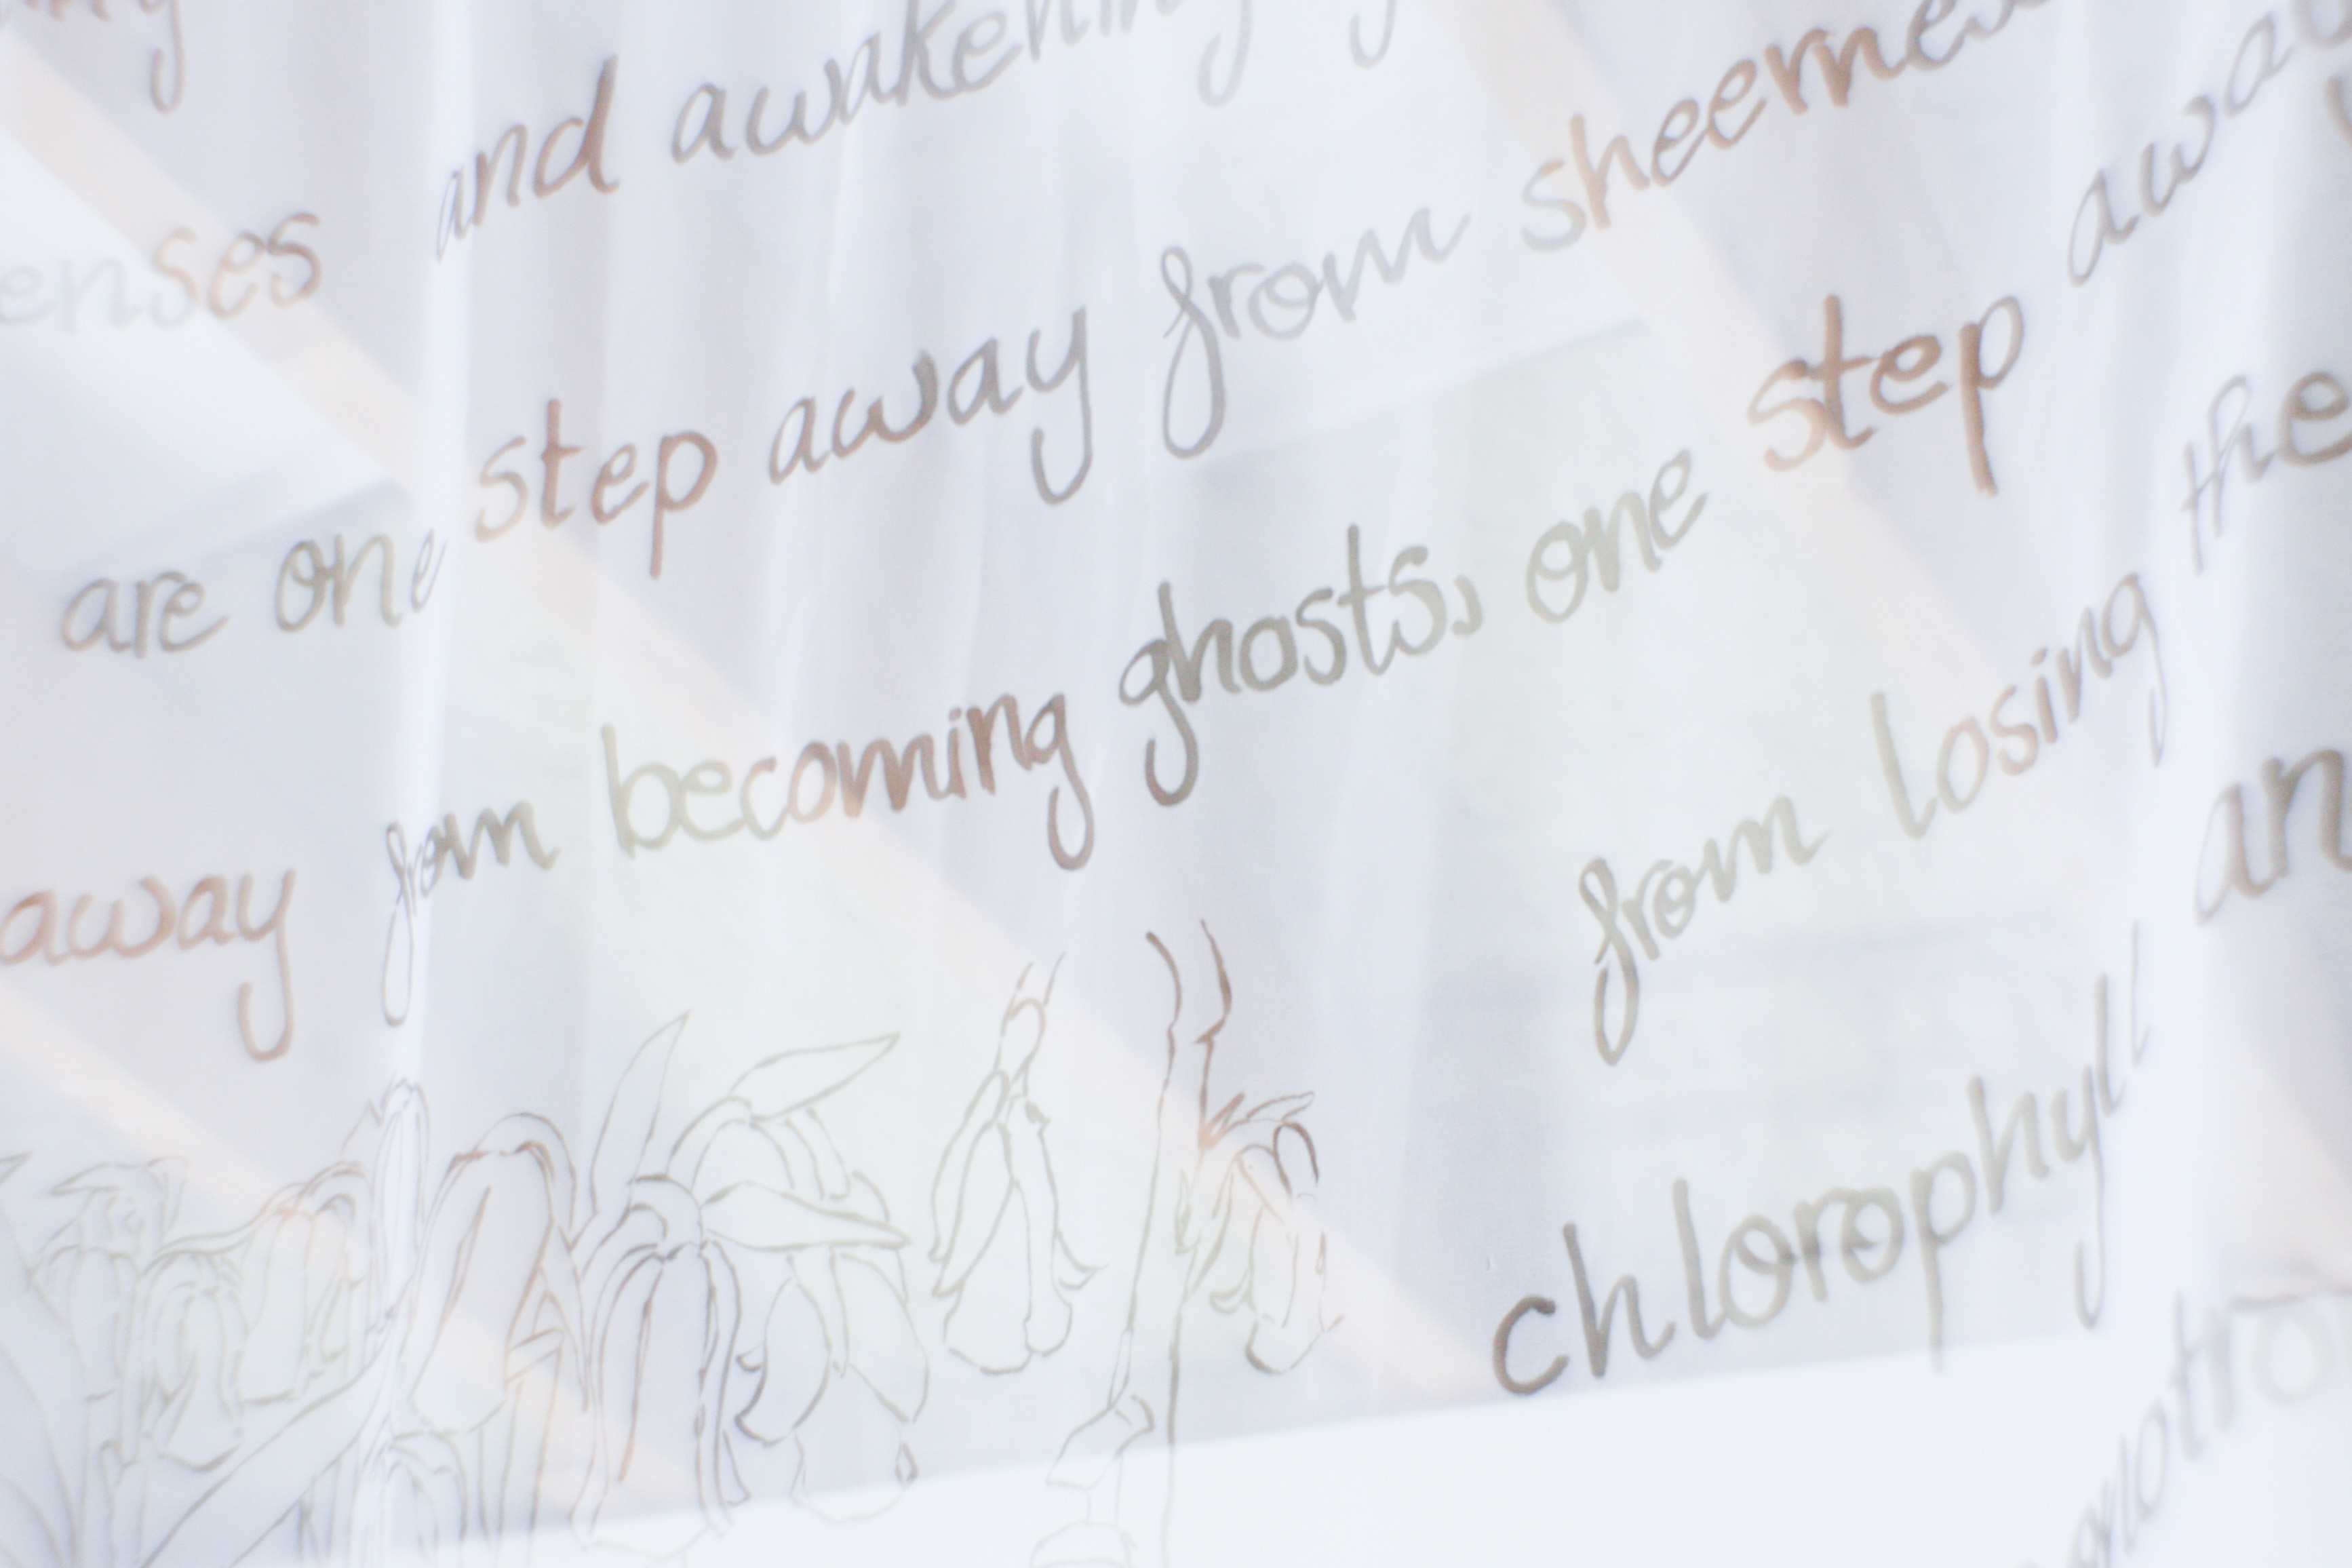 enses and awakening
are one step away from sheerness
away from becoming ghosts, one step away
from losing the
chlorophyll an